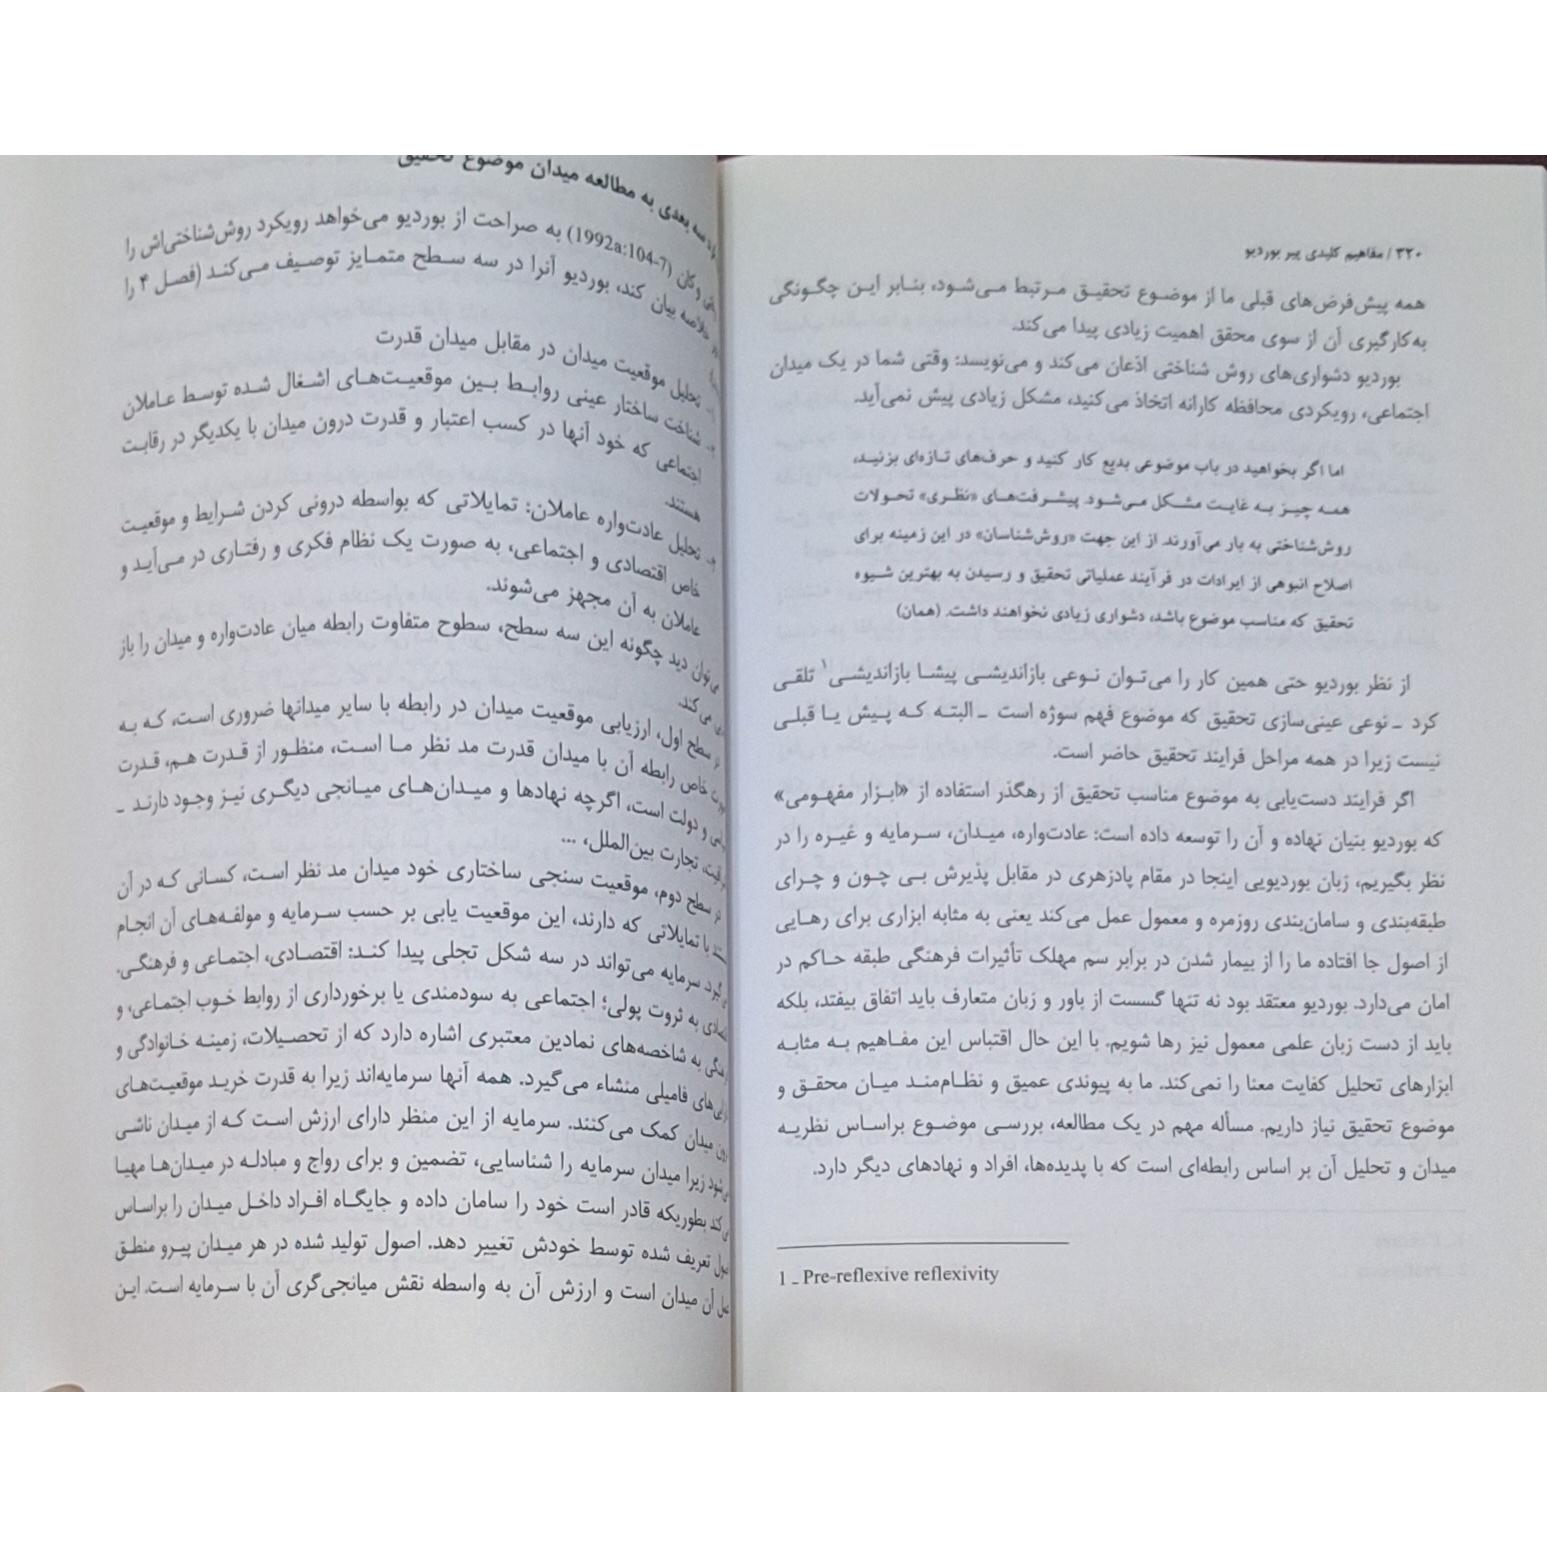 ۳۲۰ / مفاهیم کلیدی پیر بوردیو
همه پیش‌فرض‌های قبلی ما از موضوع تحقیق مرتبط می‌شود، بنابر این چگونگی
به‌کارگیری آن از سوی محقق اهمیت زیادی پیدا می‌کند.
بوردیو دشواری‌های روش شناختی اذعان می‌کند و می‌نویسد: وقتی شما در یک میدان
اجتماعی، رویکردی محافظه کارانه اتخاذ می‌کنید، مشکل زیادی پیش نمی‌آید.
اما اگر بخواهید در باب موضوعی بدیع کار کنید و حرف‌های تازه‌ای بزنید،
همه چیز به غایت مشکل می‌شود. پیشرفت‌های «نظری» تحولات
روش‌شناختی به بار می‌آورند. از این جهت «روش‌شناسان» در این زمینه برای
اصلاح انبوهی از ایرادات در فرآیند عملیاتی تحقیق و رسیدن به بهترین شیوه
تحقیق که مناسب موضوع باشد، دشواری زیادی نخواهند داشت. (همان)
از نظر بوردیو حتی همین کار را می‌توان نوعی بازاندیشی پیشا بازاندیشی۱ تلقی
کرد ـ نوعی عینی‌سازی تحقیق که موضوع فهم سوژه است ـ البته که پیش یا قبلی
نیست زیرا در همه مراحل فرایند تحقیق حاضر است.
اگر فرایند دست‌یابی به موضوع مناسب تحقیق از رهگذر استفاده از «ابزار مفهومی»
که بوردیو بنیان نهاده و آن را توسعه داده است: عادت‌واره، میدان، سرمایه و غیره را در
نظر بگیریم، زبان بوردیویی اینجا در مقام پادزهری در مقابل پذیرش بی چون و چرای
طبقه‌بندی و سامان‌بندی روزمره و معمول عمل می‌کند یعنی به مثابه ابزاری برای رهایی
از اصول جا افتاده ما را از بیمار شدن در برابر سم مهلک تأثیرات فرهنگی طبقه حاکم در
امان می‌دارد. بوردیو معتقد بود نه تنها گسست از باور و زبان متعارف باید اتفاق بیفتد، بلکه
باید از دست زبان علمی معمول نیز رها شویم. با این حال اقتباس این مفاهیم به مثابه
ابزارهای تحلیل کفایت معنا را نمی‌کند. ما به پیوندی عمیق و نظام‌مند میان محقق و
موضوع تحقیق نیاز داریم. مسأله مهم در یک مطالعه، بررسی موضوع براساس نظریه
میدان و تحلیل آن بر اساس رابطه‌ای است که با پدیده‌ها، افراد و نهادهای دیگر دارد.
1 ـ Pre-reflexive reflexivity
سه بعدی به مطالعه میدان موضوع تحقیق
وکان (1992a:104-7) به صراحت از بوردیو می‌خواهد رویکرد روش‌شناختی‌اش را
خلاصه بیان کند، بوردیو آنرا در سه سطح متمایز توصیف می‌کند (فصل ۴ را
تحلیل موقعیت میدان در مقابل میدان قدرت
شناخت ساختار عینی روابط بین موقعیت‌های اشغال شده توسط عاملان
اجتماعی که خود آنها در کسب اعتبار و قدرت درون میدان با یکدیگر در رقابت
هستند.
تحلیل عادت‌واره عاملان: تمایلاتی که بواسطه درونی کردن شرایط و موقعیت
خاص اقتصادی و اجتماعی، به صورت یک نظام فکری و رفتاری در می‌آید و
عاملان به آن مجهز می‌شوند.
می‌توان دید چگونه این سه سطح، سطوح متفاوت رابطه میان عادت‌واره و میدان را باز
می‌کند.
در سطح اول، ارزیابی موقعیت میدان در رابطه با سایر میدانها ضروری است، که به
خاص رابطه آن با میدان قدرت مد نظر ما است، منظور از قدرت هم، قدرت
و دولت است، اگرچه نهادها و میدان‌های میانجی دیگری نیز وجود دارند ـ
تجارت بین‌الملل، ...
در سطح دوم، موقعیت سنجی ساختاری خود میدان مد نظر است، کسانی که در آن
با تمایلاتی که دارند، این موقعیت یابی بر حسب سرمایه و مولفه‌های آن انجام
سرمایه می‌تواند در سه شکل تجلی پیدا کند: اقتصادی، اجتماعی و فرهنگی.
به ثروت پولی؛ اجتماعی به سودمندی یا برخورداری از روابط خوب اجتماعی، و
به شاخصه‌های نمادین معتبری اشاره دارد که از تحصیلات، زمینه خانوادگی و
فامیلی منشاء می‌گیرد. همه آنها سرمایه‌اند زیرا به قدرت خرید موقعیت‌های
میدان کمک می‌کنند. سرمایه از این منظر دارای ارزش است که از میدان ناشی
زیرا میدان سرمایه را شناسایی، تضمین و برای رواج و مبادله در میدان‌ها مهیا
بطوریکه قادر است خود را سامان داده و جایگاه افراد داخل میدان را براساس
تعریف شده توسط خودش تغییر دهد. اصول تولید شده در هر میدان پیرو منطق
آن میدان است و ارزش آن به واسطه نقش میانجی‌گری آن با سرمایه است. این